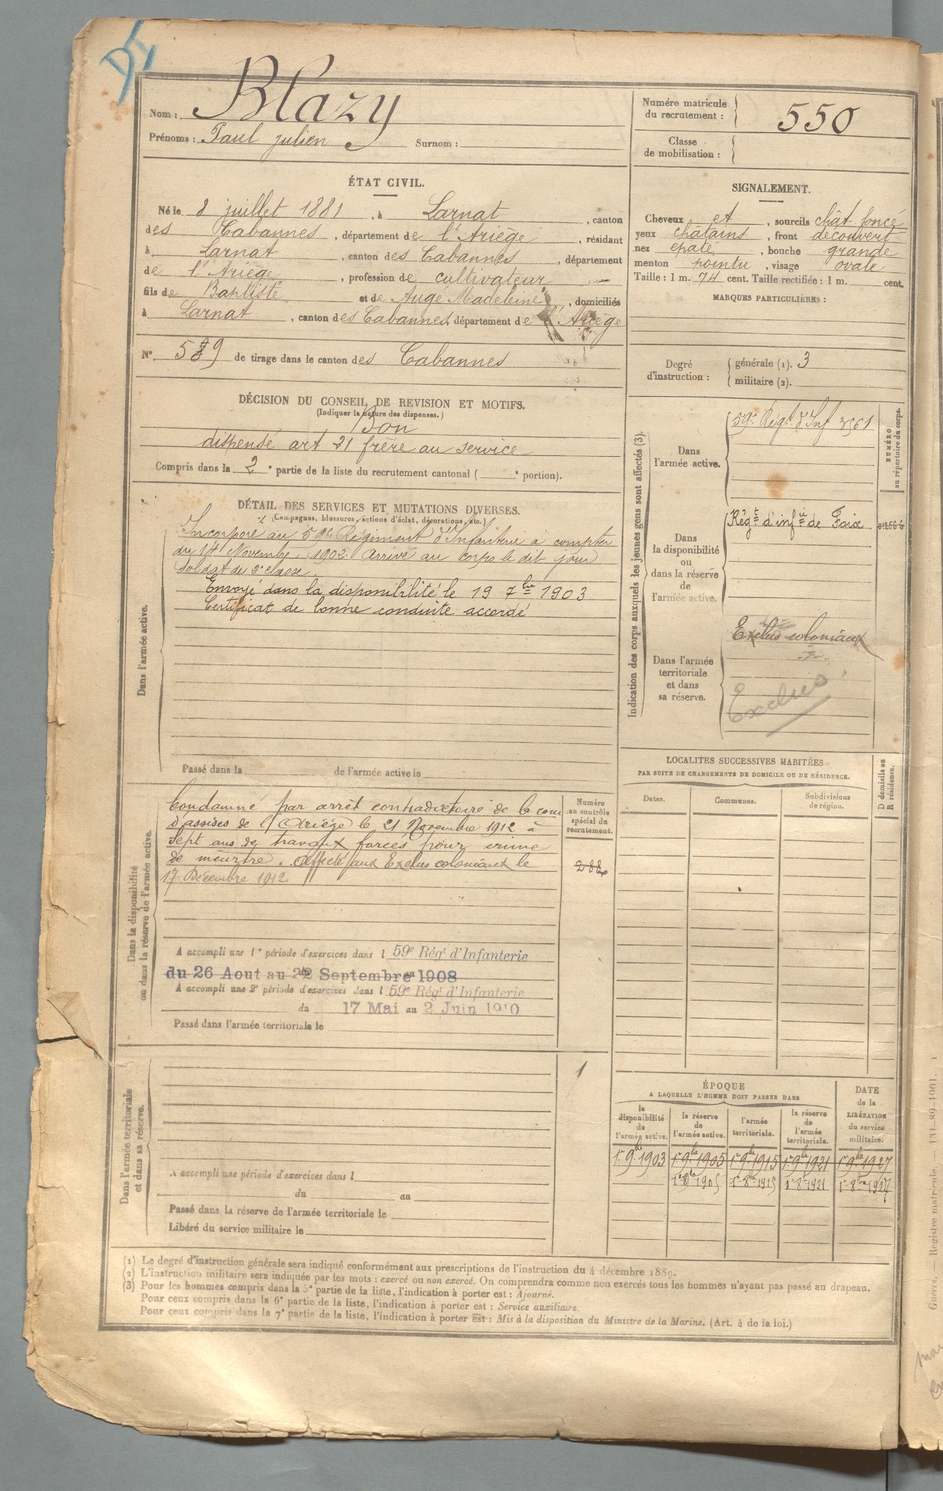 Nom : Blazy
Prénoms : Paul julien Surnom :
Numéro matricule du recrutement : 550
Classe de mobilisation :
ÉTAT CIVIL.
Né le 8 juillet 1881, à Larnat, canton
des Cabannes, département de l'Ariège, résidant
à Larnat, canton des Cabannes, département
de l'Ariège, profession de cultivateur
fils de Baptiste et de Auge Madeleine, domiciliés
à Larnat, canton des Cabannes, département de l'Ariège
N° de tirage dans le canton des Cabannes
SIGNALEMENT.
Cheveux et, sourcils chât foncé
yeux châtains, front découvert
nez épaté, bouche grande
menton pointu, visage ovale
Taille : 1 m. 74 cent. Taille rectifiée : 1 m. cent.
MARQUES PARTICULIÈRES :
Degré d'instruction : générale (1). 3
militaire (2).
DÉCISION DU CONSEIL DE REVISION ET MOTIFS.
(Indiquer la nature des dispenses.)
Bon
dispensé art 21 frère au service
Compris dans la 2e partie de la liste du recrutement cantonal ( e portion).
DÉTAIL DES SERVICES ET MUTATIONS DIVERSES.
(Campagnes, blessures, actions d'éclat, décorations, etc.)
Dans l'armée active.
Incorporé au 59e Régiment d'Infanterie à compter
du 14 Novembre 1902. Arrivé au corps le dit jour
soldat de 2e classe.
Envoyé dans la disponibilité le 19 7bre 1903
Certificat de bonne conduite accordé
Passé dans la de l'armée active le
Indication des corps auxquels les jeunes gens sont affectés (3).
NUMÉRO au répertoire du corps.
Dans l'armée active.
59e Régt d'Inf 3561
Dans la disponibilité ou dans la réserve de l'armée active.
Régt d'infie de Foix
Dans l'armée territoriale et dans sa réserve.
Exclus coloniaux
Exclus
Dans la disponibilité ou dans la réserve de l'armée active.
Condamné par arrêt contradictoire de la cour
d'assises de l'Ariège le 21 Novembre 1912 à
sept ans de travaux forcés pour crime
de meurtre. Affecté aux Exclus coloniaux le
17 Décembre 1912.
Numéro au contrôle spécial du recrutement.
A accompli une 1re période d'exercices dans l 59e Régt d'Infanterie
du 26 Aout au 22 Septembre 1908
A accompli une 2e période d'exercices dans l 59e Régt d'Infanterie
du 17 Mai au 2 Juin 1910
Passé dans l'armée territoriale le
LOCALITÉS SUCCESSIVES HABITÉES
PAR SUITE DE CHANGEMENTS DE DOMICILE OU DE RÉSIDENCE.
Dates. Communes. Subdivisions de région. D domicile ou R résidence.
Dans l'armée territoriale et dans sa réserve.
A accompli une période d'exercices dans l
du au
Passé dans la réserve de l'armée territoriale le
Libéré du service militaire le
ÉPOQUE
A LAQUELLE L'HOMME DOIT PASSER DANS
la disponibilité de l'armée active. la réserve de l'armée active. l'armée territoriale. la réserve de l'armée territoriale. DATE de la LIBÉRATION du service militaire.
1er 9bre 1903 1er 9bre 1905 1er 9bre 1915 1er 9bre 1921 1er 9bre 1927
1er 8bre 1905 1er 8bre 1915 1er 8bre 1921 1er 8bre 1927
(1) Le degré d'instruction générale sera indiqué conformément aux prescriptions de l'instruction du 4 décembre 1889.
(2) L'instruction militaire sera indiquée par les mots : exercé ou non exercé. On comprendra comme non exercés tous les hommes n'ayant pas passé au drapeau.
(3) Pour les hommes compris dans la 5e partie de la liste, l'indication à porter est : Ajourné.
Pour ceux compris dans la 6e partie de la liste, l'indication à porter est : Service auxiliaire.
Pour ceux compris dans la 7e partie de la liste, l'indication à porter est : Mis à la disposition du Ministre de la Marine. (Art. 4 de la loi.)